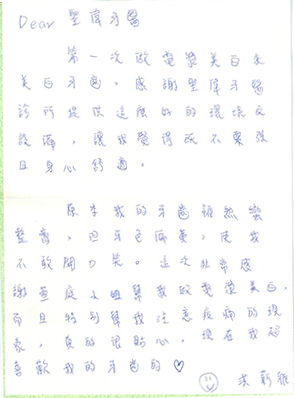 Dear 聖偉牙醫
第一次做電漿美白來
美白牙齒,感謝聖偉牙醫
診所提供這麼好的環境及
設備,讓我覺得既不緊張
且身心舒適。
原本我的牙齒雖然蠻
整齊,但牙色偏黃,使我
不敢開口笑。這次非常感
謝 庭 姐幫我做電漿美白,
而且特別幫我注意痠痛的現
象,真的很貼心,現在我超
喜歡我的牙齒的♡
洪